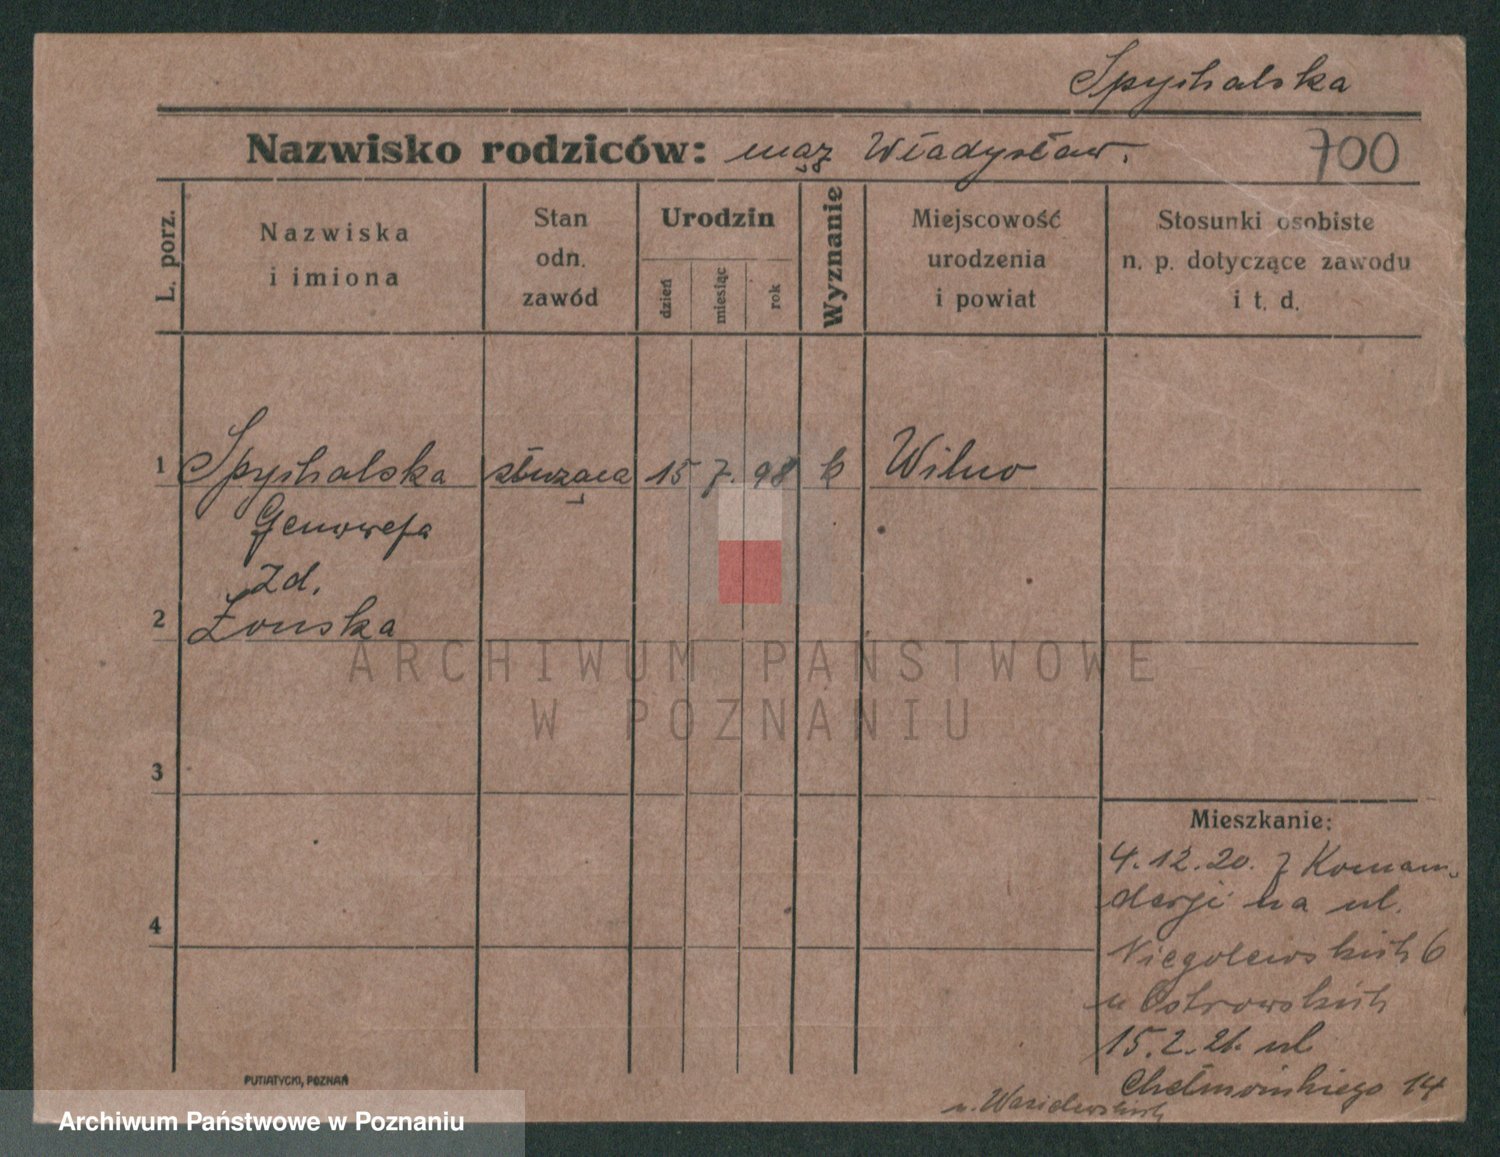 Spychalska
Nazwisko rodziców: mąż Władysław.
700
L. porz.
Nazwiska
i imiona
Stan
odn.
zawód
Urodzin
dzień
miesiąc
rok
Wyznanie
Miejscowość
urodzenia
i powiat
Stosunki osobiste
n. p. dotyczące zawodu
i t. d.
1 Spychalska służąca 15 7. 98 k Wilno
Genowefa
zd.
2 Żonska
3
4
ARCHIWUM PAŃSTWOWE
W POZNANIU
Mieszkanie:
4.12.20. z Koman-
derji na ul.
Niegolewskich 6
u Ostrowskich
15.2.21. ul
Chełmońskiego 14
PUTIATYCKI, POZNAŃ
Archiwum Państwowe w Poznaniu